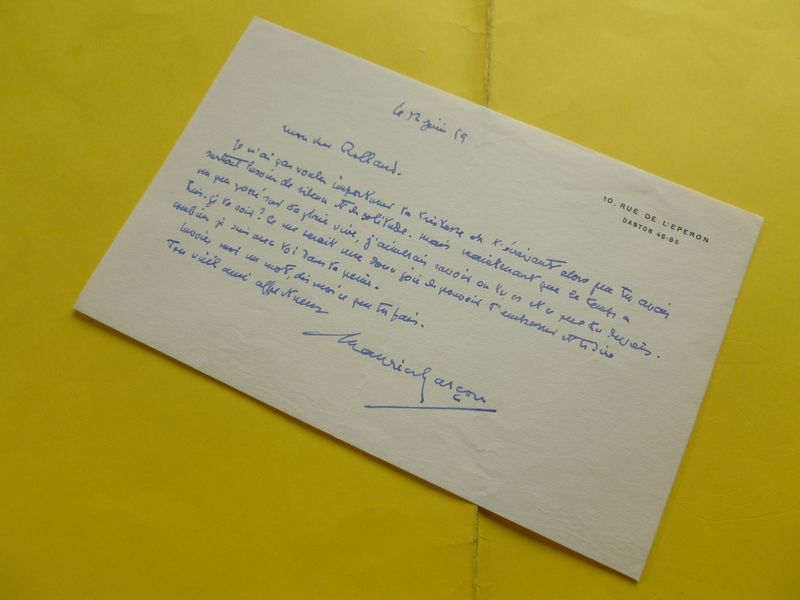 10, RUE DE L'EPERON
DANTON 46-85
le 12 juin 59
mon cher Rolland.
Je n'ai pas voulu importuner ta tristesse en t'écrivant alors que tu avais
surtout besoin de silence et de solitude. mais maintenant que le temps a
un peu passé sur ta plaie vive, j'aimerais savoir où tu es et ce que tu deviens.
Puis-je te voir ? Ce me serait une douce joie de pouvoir t'embrasser et te dire
combien je suis avec toi dans ta peine.
Envoies moi un mot, dis moi ce que tu fais.
Ton vieil ami affectueux
Maurice Garçon